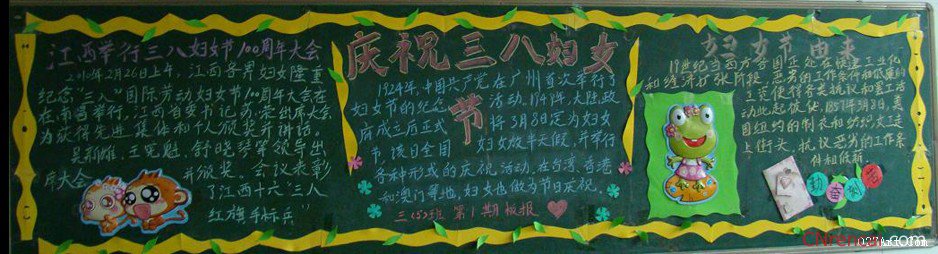 江西举行三八妇女节100周年大会
2010年2月26日上午,江西各界妇女隆重
纪念"三八"国际劳动妇女节100周年大会在
在南昌举行,江西省委书记苏荣出席大会
为获得先进集体和个人颁奖并讲话。
等领导出
席大会
并颁奖。会议表彰
了江西十六"三八
红旗手标兵"
庆祝三八妇女
节
1924年,中国共产党在广州首次举行了
妇女节的纪念活动。1949年,大陆政
府成立后正式将3月8日定为妇女
节,该日全国妇女放半天假,并举行
各种形式的庆祝活动,在台湾、香港
和澳门等地,妇女也做为节日庆祝。
三(5)班 第1期板报
妇女节由来
19世纪当西方各国正处在快速工业化
和经济扩张阶段,恶劣的工作条件和低廉的
工资使得各类抗议和罢工活
动此起彼伏,1857年3月8日,美
国纽约的制衣和纺织女工走
上街头,抗议恶劣的工作条
件和低薪。